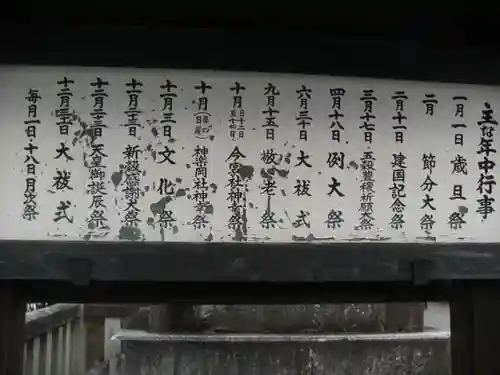 主な年中行事
一月一日 歳旦祭
二月 節分大祭
二月十一日 建国記念祭
三月十七日 五穀豊穣祈願大祭
四月十八日 例大祭
六月三十日 大祓式
九月十五日 敬老祭
十月 今宮社神幸祭
十月 神楽岡社神幸祭
十一月三日 文化祭
十一月二十三日 新穀感謝大祭
十二月二十三日 天皇御誕辰祭
十二月三十一日 大祓式
毎月一日・十八日月次祭